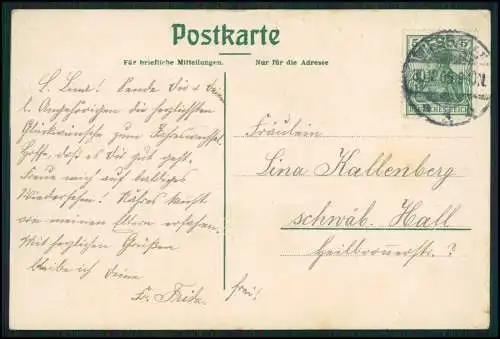 Postkarte
Für briefliche Mitteilungen.
Nur für die Adresse
L. Lina! Sende Dir u. Deinen
l. Angehörigen die herzlichsten
Glückwünsche zum Jahreswechsel.
Hoffe, daß es Dir gut geht.
Freue mich auf baldiges
Wiedersehen! Näheres kannst
von meinen Eltern erfahren.
Mit herzlichen Grüßen
bleibe ich Deine
Fr. Frida.
frei!
Fräulein
Lina Kallenberg
schwäb. Hall
Heilbronnerstr. ?